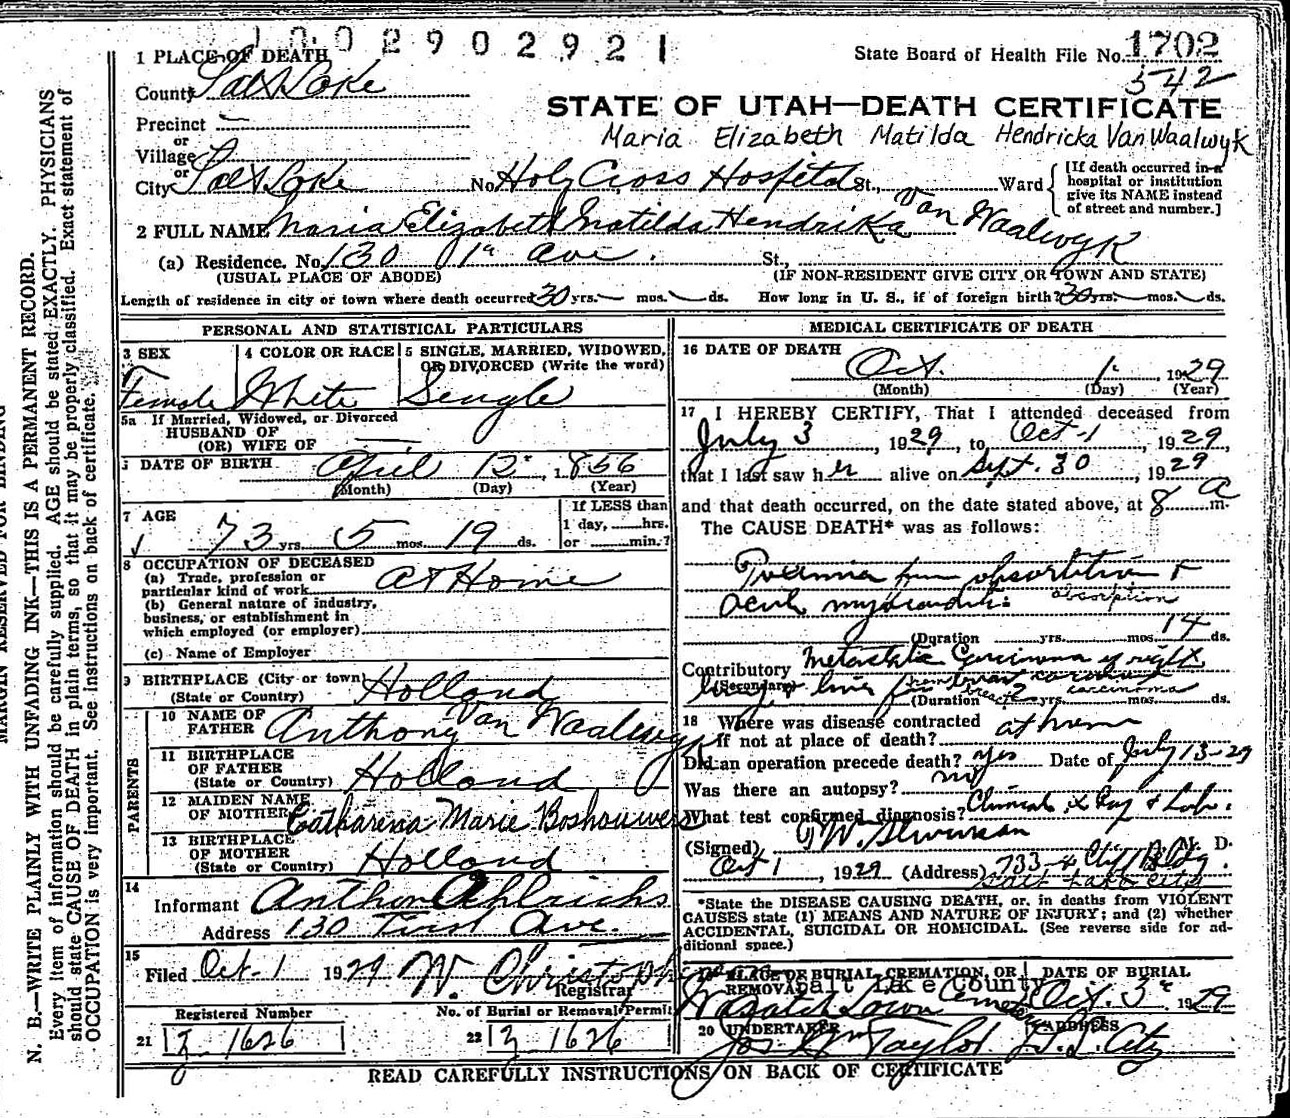 1002902921
1 PLACE OF DEATH
State Board of Health File No. 1702
County Salt Lake
542
STATE OF UTAH—DEATH CERTIFICATE
Precinct —
Maria Elizabeth Matilda Hendricka Van Waalwyk
or
Village
or
City Salt Lake No. Holy Cross Hospital St., Ward
[If death occurred in a hospital or institution give its NAME instead of street and number.]
2 FULL NAME Maria Elizabeth Matilda Hendrika Van Waalwyk
(a) Residence. No. 130 1st Ave. St.,
(USUAL PLACE OF ABODE) (IF NON-RESIDENT GIVE CITY OR TOWN AND STATE)
Length of residence in city or town where death occurred 30 yrs. — mos. ds. How long in U. S., if of foreign birth? 30 yrs. — mos. ds.
PERSONAL AND STATISTICAL PARTICULARS
3 SEX
Female
4 COLOR OR RACE
White
5 SINGLE, MARRIED, WIDOWED,
OR DIVORCED (Write the word)
Single
5a If Married, Widowed, or Divorced
HUSBAND OF
(OR) WIFE OF —
DATE OF BIRTH April 12, 1856
(Month) (Day) (Year)
7 AGE
73 yrs. 5 mos. 19 ds.
If LESS than
1 day, hrs.
or min.?
8 OCCUPATION OF DECEASED
(a) Trade, profession or
particular kind of work At Home
(b) General nature of industry,
business, or establishment in
which employed (or employer)
(c) Name of Employer
9 BIRTHPLACE (City or town)
(State or Country) Holland
PARENTS
10 NAME OF
FATHER Anthony Van Waalwyk
11 BIRTHPLACE
OF FATHER
(State or Country) Holland
12 MAIDEN NAME
OF MOTHER Catharena Marie Boshouwers
13 BIRTHPLACE
OF MOTHER
(State or Country) Holland
14
Informant Anthon Ahlrichs
Address 130 First Ave.
15
Filed Oct-1 1929 W. Christoph
Registrar
Registered Number
21 1626
No. of Burial or Removal Permit
22 1626
MEDICAL CERTIFICATE OF DEATH
16 DATE OF DEATH
Oct. 1 1929
(Month) (Day) (Year)
17 I HEREBY CERTIFY, That I attended deceased from
July 3, 1929, to Oct-1, 1929,
that I last saw her alive on Sept. 30, 1929
and that death occurred, on the date stated above, at 8 a m.
The CAUSE DEATH* was as follows:
from absorbtion +
absorption
myocarditis
(Duration yrs. mos. 14 ds.
Contributory Metastatic Carcinoma of right
(Secondary) lung + liver from breast carcinoma
(Duration 2 yrs. mos. ds.
18 Where was disease contracted
If not at place of death? at home
Did an operation precede death? yes Date of July 13-29
Was there an autopsy? no
What test confirmed diagnosis? Clinical, x Ray & Lab.
(Signed) M. D.
Oct 1, 1929 (Address) 733-4 Cliff Bldg.
Salt Lake City
*State the DISEASE CAUSING DEATH, or, in deaths from VIOLENT
CAUSES state (1) MEANS AND NATURE OF INJURY; and (2) whether
ACCIDENTAL, SUICIDAL OR HOMICIDAL. (See reverse side for ad-
ditional space.)
PLACE OF BURIAL, CREMATION, OR
REMOVAL Salt Lake County
Wasatch Lawn Cemetery
DATE OF BURIAL
Oct. 3 1929
20 UNDERTAKER
Jos. Wm Taylor
ADDRESS
S. L. City
READ CAREFULLY INSTRUCTIONS ON BACK OF CERTIFICATE
MARGIN RESERVED FOR BINDING
N. B.—WRITE PLAINLY WITH UNFADING INK—THIS IS A PERMANENT RECORD.
Every item of information should be carefully supplied. AGE should be stated EXACTLY. PHYSICIANS
should state CAUSE OF DEATH in plain terms, so that it may be properly classified. Exact statement of
OCCUPATION is very important. See instructions on back of certificate.